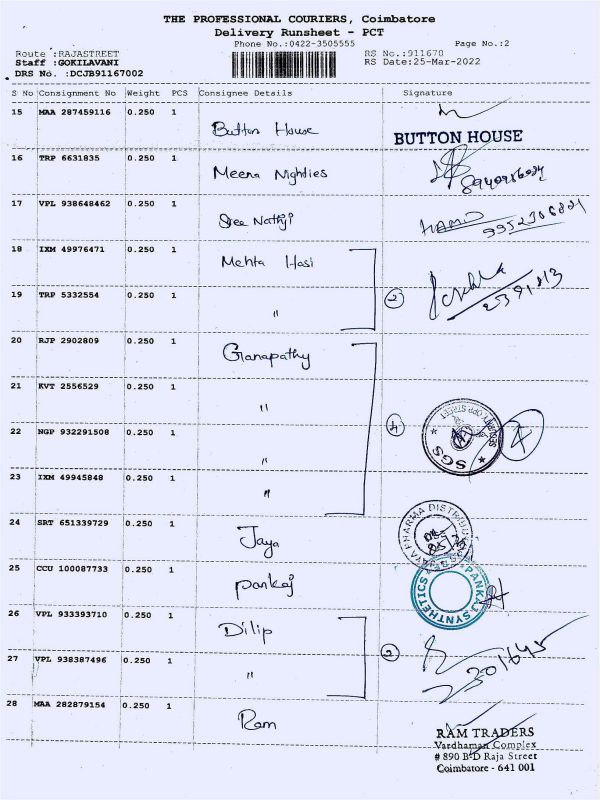 THE PROFESSIONAL COURIERS, Coimbatore
Delivery Runsheet - PCT
Phone No.:0422-3505555 Page No.:2
Route :RAJASTREET RS No.:911670
Staff :GOKILAVANI RS Date:25-Mar-2022
DRS No. :DCJB91167002
S No Consignment No Weight PCS Consignee Details Signature
15 MAA 287459116 0.250 1 Button House
BUTTON HOUSE
16 TRP 6631835 0.250 1 Meena Nighties
17 VPL 938648462 0.250 1 Sree Nathji
9952306821
18 IXM 49976471 0.250 1 Mehta Hasi
19 TRP 5332554 0.250 1 " 2
20 RJP 2902809 0.250 1 Ganapathy
21 KVT 2556529 0.250 1 "
4
22 NGP 932291508 0.250 1 "
SGS
23 IXM 49945848 0.250 1 "
24 SRT 651339729 0.250 1 Jaya
25 CCU 100087733 0.250 1 Pankaj
PANKAJ SYNTHETICS
26 VPL 933393710 0.250 1 Dilip
27 VPL 938387496 0.250 1 " 2
28 MAA 282879154 0.250 1 Ram
RAM TRADERS
Vardhaman Complex
# 890 B-D Raja Street
Coimbatore - 641 001